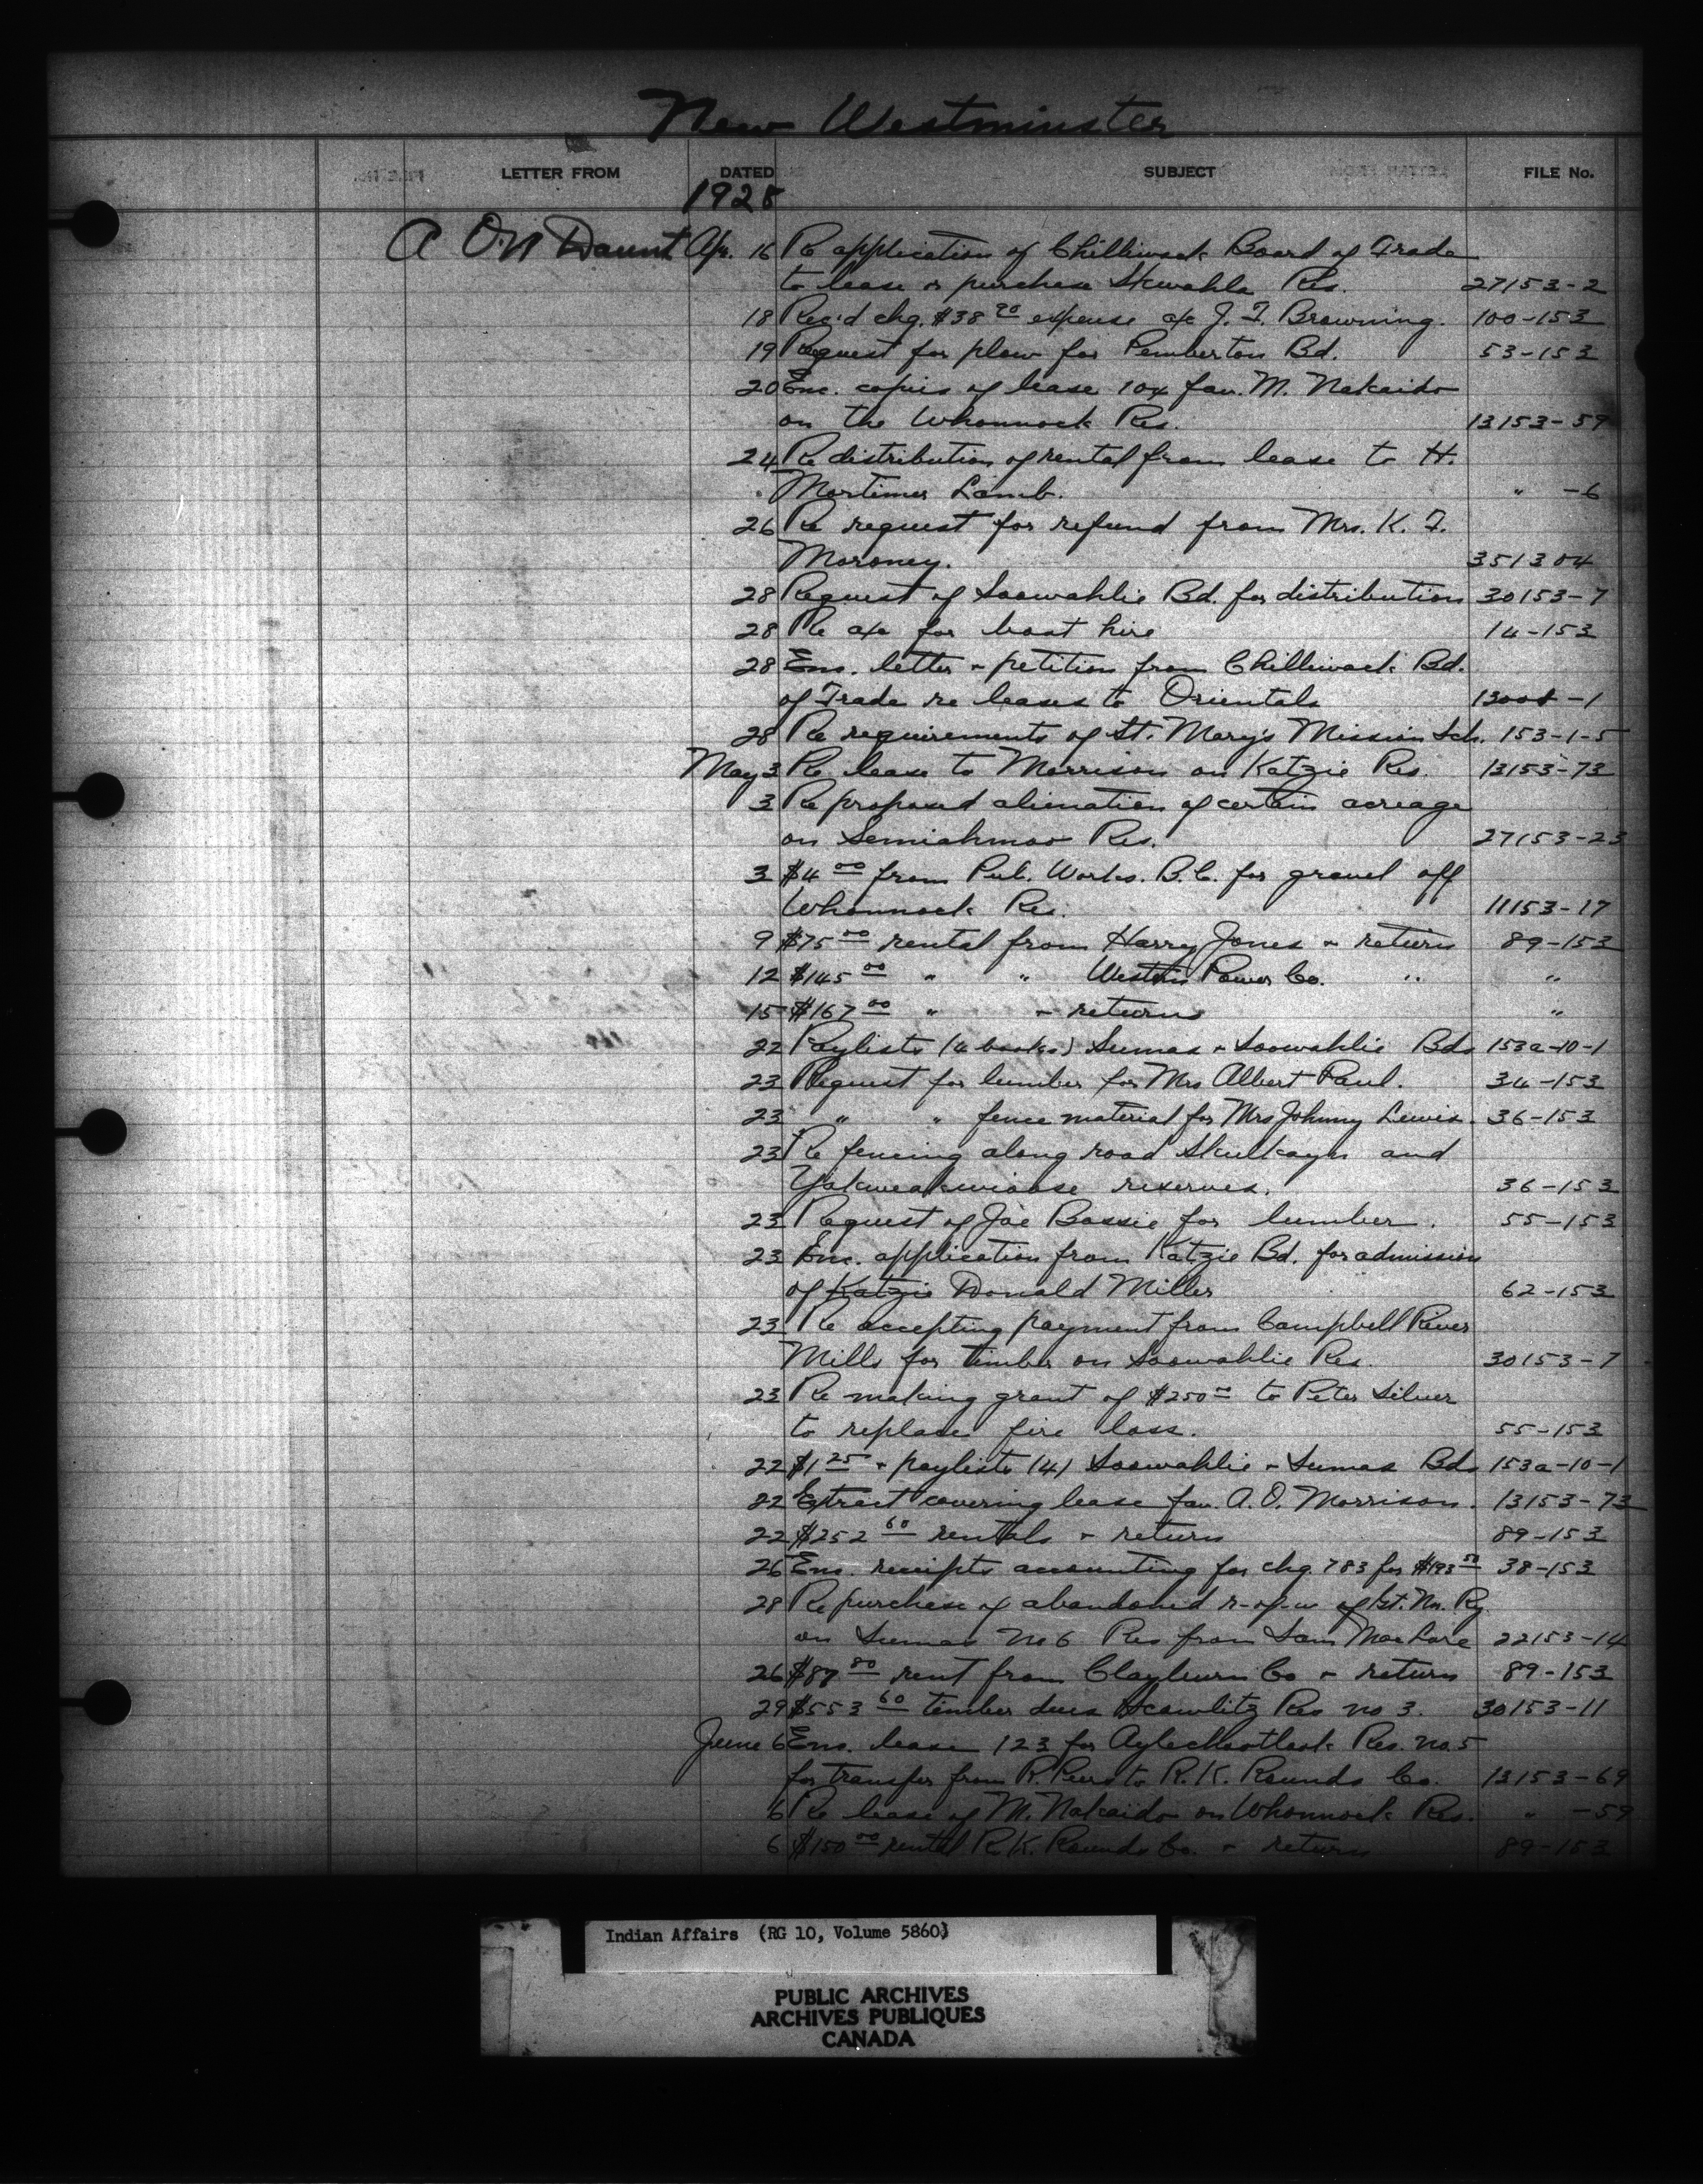 New Westminster
LETTER FROM DATED SUBJECT FILE No.
1928
A O'N Daunt Apr. 16 Re application of Chilliwack Board of Trade
to lease or purchase Skwahla Res. 27153-2
18 Rec'd chq. $38 20 expense a/c J. F. Browning. 100-153
19 Request for plow for Pemberton Bd. 53-153
20 Enc. copies of lease 104 fav. M. Nakaido
on the Whonnock Res. 13153-59
24 Re distribution of rental from lease to H.
Mortimer Lamb. " -6
26 Re request for refund from Mrs. K. F.
Moroney. 351304
28 Request of Soowahlie Bd. for distribution 30153-7
28 Re a/c for boat hire 14-153
28 Enc. letter & petition from Chilliwack Bd.
of Trade re leases to Orientals -1
28 Re requirements of St. Mary's Mission Sch. 153-1-5
May 3 Re lease to Morrison on Katzie Res. 13153-73
3 Re proposed alienation of certain acreage
on Semiahmoo Res. 27153-23
3 $4 00 from Pub. Works. B.C. for gravel off
Whonnock Res. 11153-17
9 $75 00 rental from Harry Jones & return 89-153
12 $145 00 " " Western Power Co. " "
15 $167 00 " & returns "
22 Paylists (4 books) Sumas & Soowahlie Bds 153a-10-1
23 Request for lumber for Mrs Albert Paul. 34-153
23 " " fence material for Mrs Johnny Lewis. 36-153
23 Re fencing along road Skulkayn and
Yakweakwioose reserves. 36-153
23 Request of Joe Bassie for lumber. 55-153
23 Enc. application from Katzie Bd. for admission
of Katzie Donald Miller 62-153
23 Re accepting payment from Campbell River
Mills for timber on Soowahlie Res. 30153-7
23 Re making grant of $250 00 to Peter Silver
to replace fire loss. 55-153
22 $1 25 & paylists (4) Soowahlie & Sumas Bds 153a-10-1
22 Extract covering lease fav. A. O. Morrison. 13153-73
22 $252 60 rentals & return 89-153
26 Enc. receipts accounting for chq. 783 for $193 50 38-153
28 Re purchase of abandoned r-of-w of Gt. Nor. Ry.
on Sumas No 6 Res from Sam 22153-14
26 $87 80 rent from Clayburn Co & return 89-153
29 $553 60 timber dues Scowlitz Res no 3. 30153-11
June 6 Enc. lease 123 for Aylechootlook Res. no. 5
for transfer from R. to R. K. Rounds Co. 13153-69
6 Re lease of M. Nakaido on Whonnock Res. " -59
6 $150 00 rental R. K. Rounds Co. & return 89-153
Indian Affairs (RG 10, Volume 5860)
PUBLIC ARCHIVES
ARCHIVES PUBLIQUES
CANADA